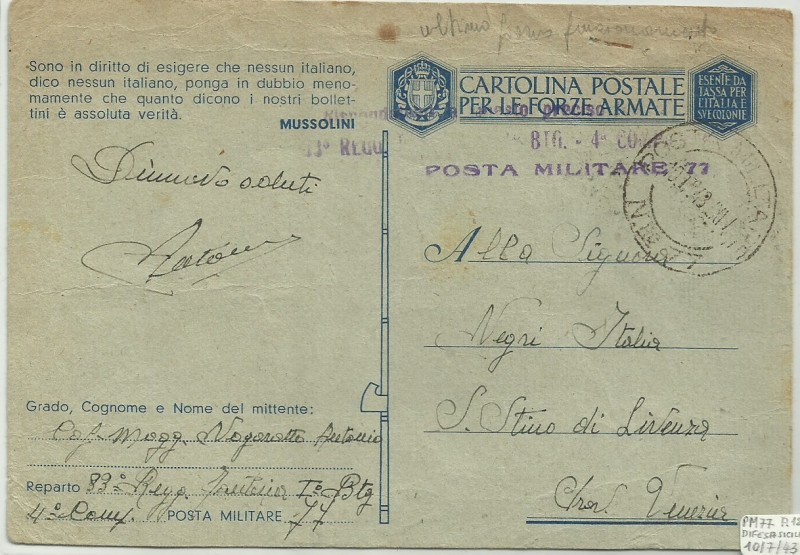 ultimo giorno funzionamento
Sono in diritto di esigere che nessun italiano,
dico nessun italiano, ponga in dubbio meno-
mamente che quanto dicono i nostri bollet-
tini è assoluta verità.
MUSSOLINI
CARTOLINA POSTALE
PER LE FORZE ARMATE
ESENTE DA
TASSA PER
L'ITALIA E
SVE COLONIE
BTG. - 4ª CO
POSTA MILITARE 77
POSTA MILITARE
N.77
Rinnovo saluti
Alla Signora
Negri Italia
S. Stino di Livenza
Prov. Venezia
Grado, Cognome e Nome del mittente:
Cap. Magg. Antonio
Reparto 83º Regg. Fanteria Iº Btg
4º Comp. POSTA MILITARE 77
PM77 P.12
DIFESA SICILI
10/7/43